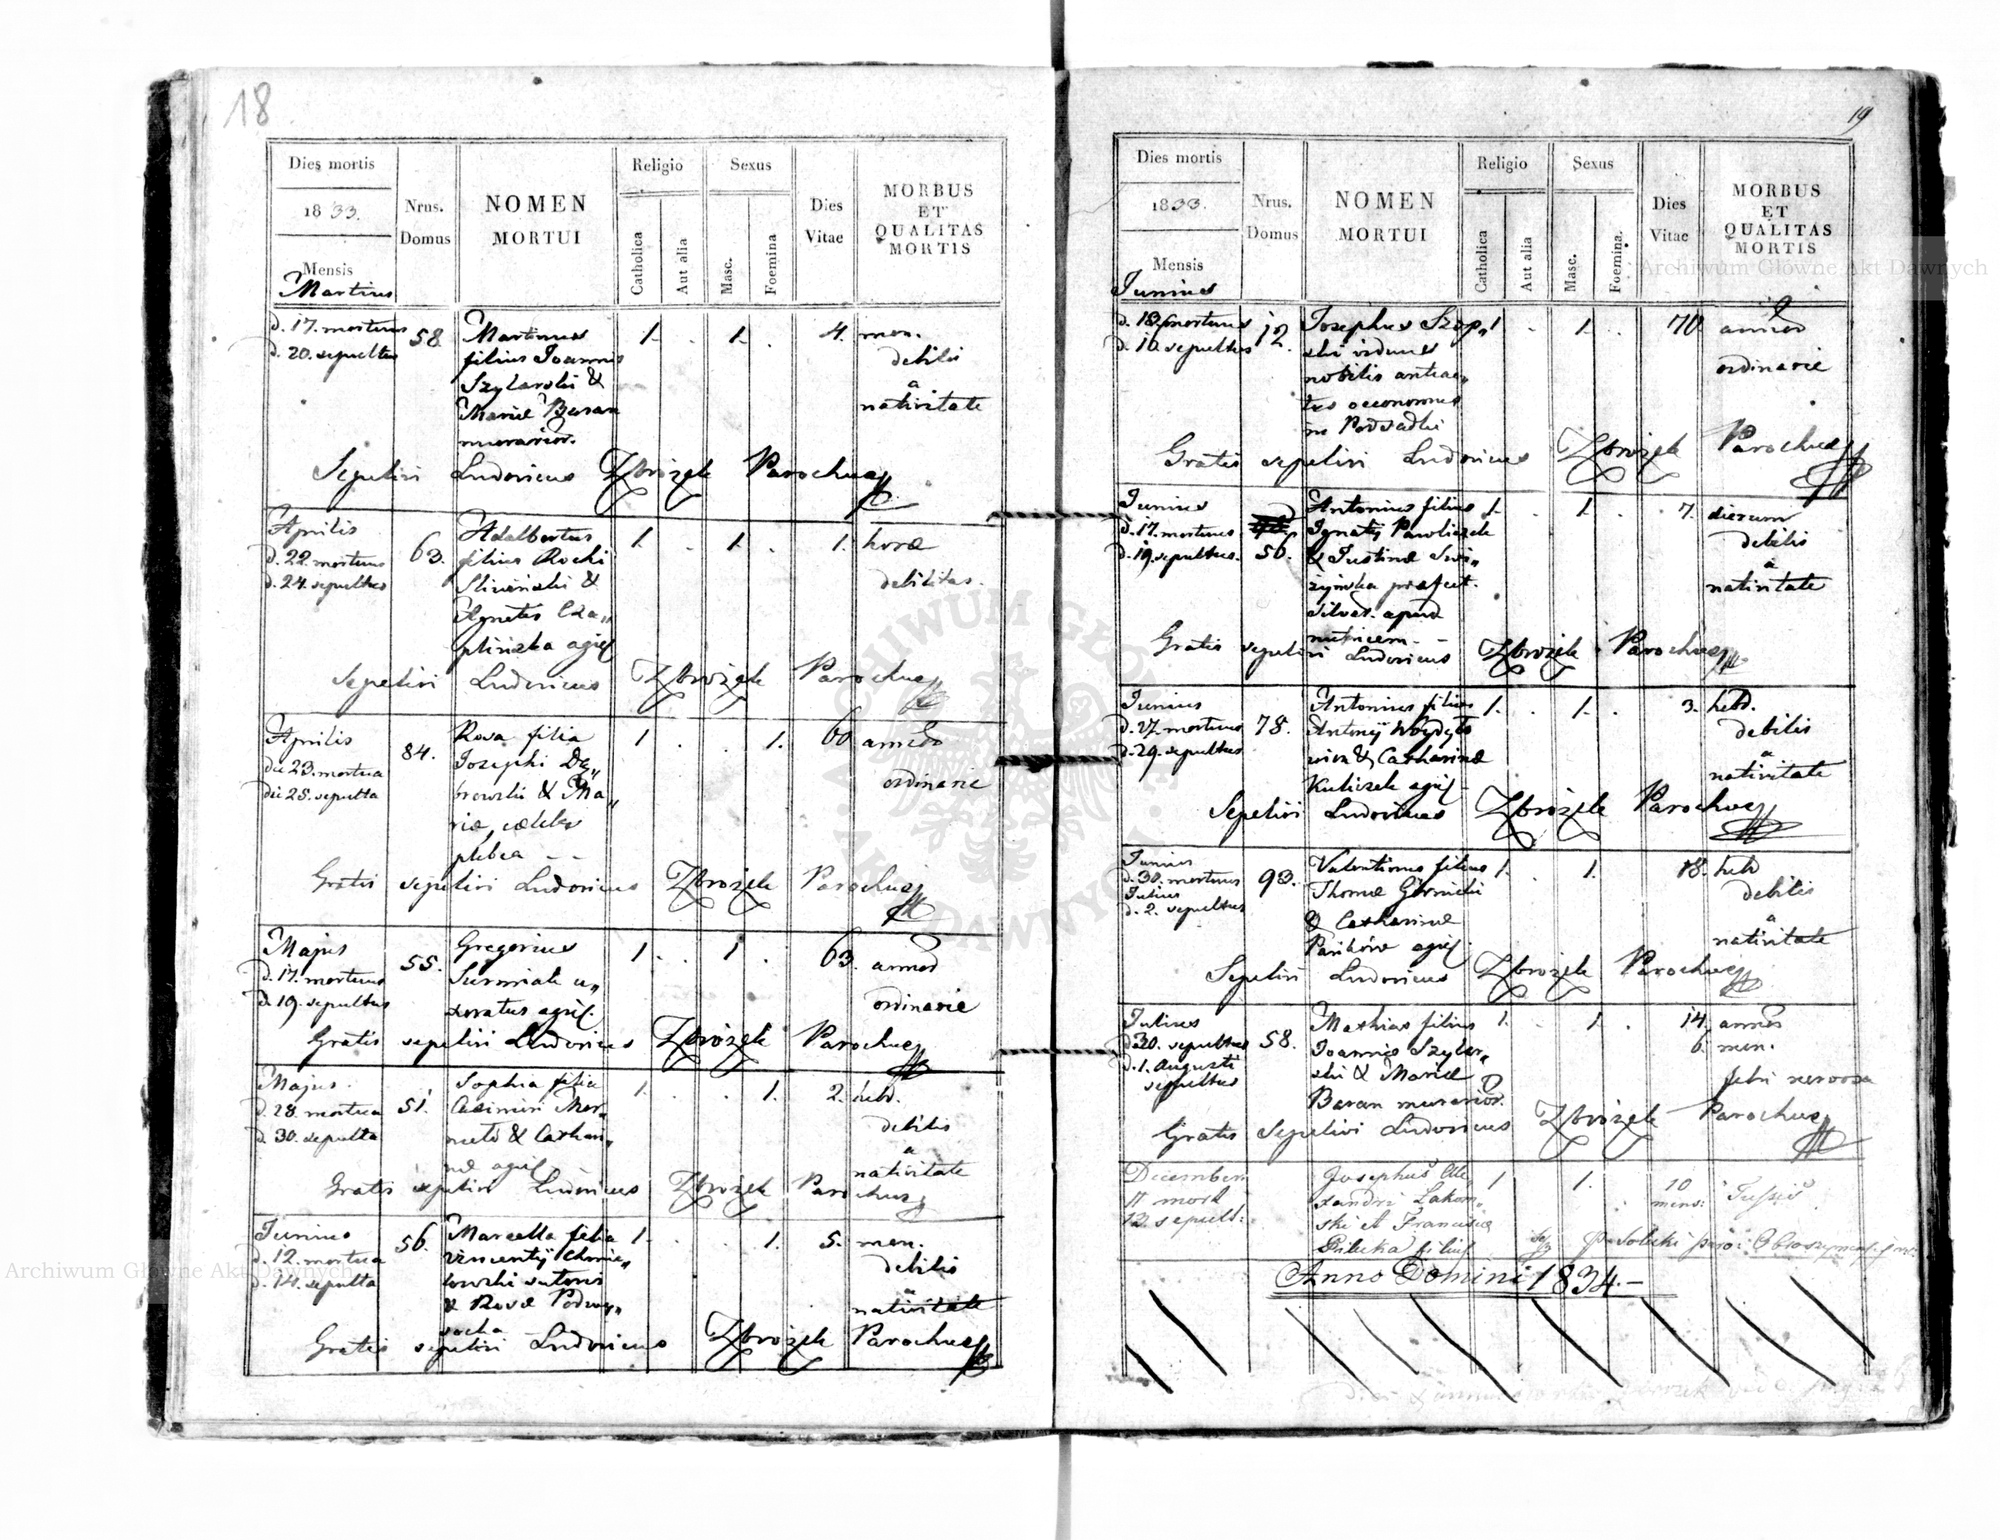 18
Dies mortis
1833.
Mensis
Martius
Nrus.
Domus
NOMEN
MORTUI
Religio
Catholica
Aut alia
Sexus
Masc.
Foemina
Dies
Vitae
MORBUS
ET
QUALITAS
MORTIS
d. 17. mortuus 58. Martinus 1. . 1. . 4. men.
d. 20. sepultus filius Joannis debilis
Szylarski & a
Mariæ Baran nativitate
murarior.
Sepelivi Ludovicus Zbrożek Parochus
Aprilis Adalbertus 1. . 1. . 1. horæ
d. 22. mortuus 63. filius Rochi
d. 24. sepultus Sliwiński & debilitas.
Agnetis Cza„
plińska agric.
Sepelivi Ludovicus Zbrożek Parochus
Aprilis 84. Rosa filia 1 . . 1. 60 annor
die 23. mortua Josephi Dą„
die 25. sepulta browski & Ma„ ordinarie
riæ, cælebs
plebea - -
Gratis sepelivi Ludovicus Zbrożek Parochus
Majus 55. Gregorius 1 . 1 . 63. annor
d. 17. mortuus Surmiak u„
d. 19. sepultus xoratus agric. ordinarie
Gratis sepelivi Ludovicus Zbrożek Parochus
Majus Sophia filia 1. . . 1. 2. heb.
d. 28. mortua 51. Casimiri
d. 30. sepulta & Cathari„ debilis
næ agric. a
nativitate
Gratis sepelivi Ludovicus Zbrożek Parochus
Junius 56. Marcella filia 1. . . 1. 5. men.
d. 12. mortua Vincentij Chmie„ debilis
d. 14. sepulta lowski sutoris a
& Rosæ Podwy„ nativitate
socka
Gratis sepelivi Ludovicus Zbrożek Parochus
19
Dies mortis
1833.
Mensis
Junius
Nrus.
Domus
NOMEN
MORTUI
Religio
Catholica
Aut alia
Sexus
Masc.
Foemina.
Dies
Vitae
MORBUS
ET
QUALITAS
MORTIS
mortuus 12. Josephus Szop„ 1 . 1. . 70 annor
sepultus ski viduus
nobilis antea„ ordinarie
oeconomus
in Podsadki
Gratis sepelivi Ludovicus Zbrożek Parochus
Junius Antonius filius 1. . 1. . 7. dierum
d. 17. mortuus Ignatij Pawliczek debilis
d. 19. sepultus. 56. & Justinæ Swi„ a
præfect. nativitate
silvar. apud
nutricem. -
Gratis sepelivi Ludovicus Zbrożek Parochus
Junius Antonius filius 1. . 1. . 3. hebd.
d. 27. mortuus 78. Antonij Woydyło debilis
d. 29. sepultus wicz & Catharinæ a
Kuliczek agric. nativitate
Sepelivi Ludovicus Zbrożek Parochus
Junius Valentinus filius 1. . 1. 18. heb
d. 30. mortuus 93. Thomæ Górnicki debilis
Julius & Catharinæ a
d. 2. sepultus agric. nativitate
Sepelivi Ludovicus Zbrożek Parochus
Julius Mathias filius 1. . 1. . 14. annor
d. 30. sepultus 58. Joannis Szylar„ 6. men.
d. 1. Augusti ski & Mariæ
sepultus Baran murarior. febri nervosa
Gratis Sepelivi Ludovicus Zbrożek Parochus
December Josephus Ale 1 1. 10 Tussis
11 mort xandri Lakom„ mens:
13. sepult: ski et Franciscæ
Pilecka filius
Anno Domini 1834.-
Archiwum Główne Akt Dawnych
Archiwum Główne Akt Dawnych
ARCHIWUM GŁÓWNE AKT DAWNYCH